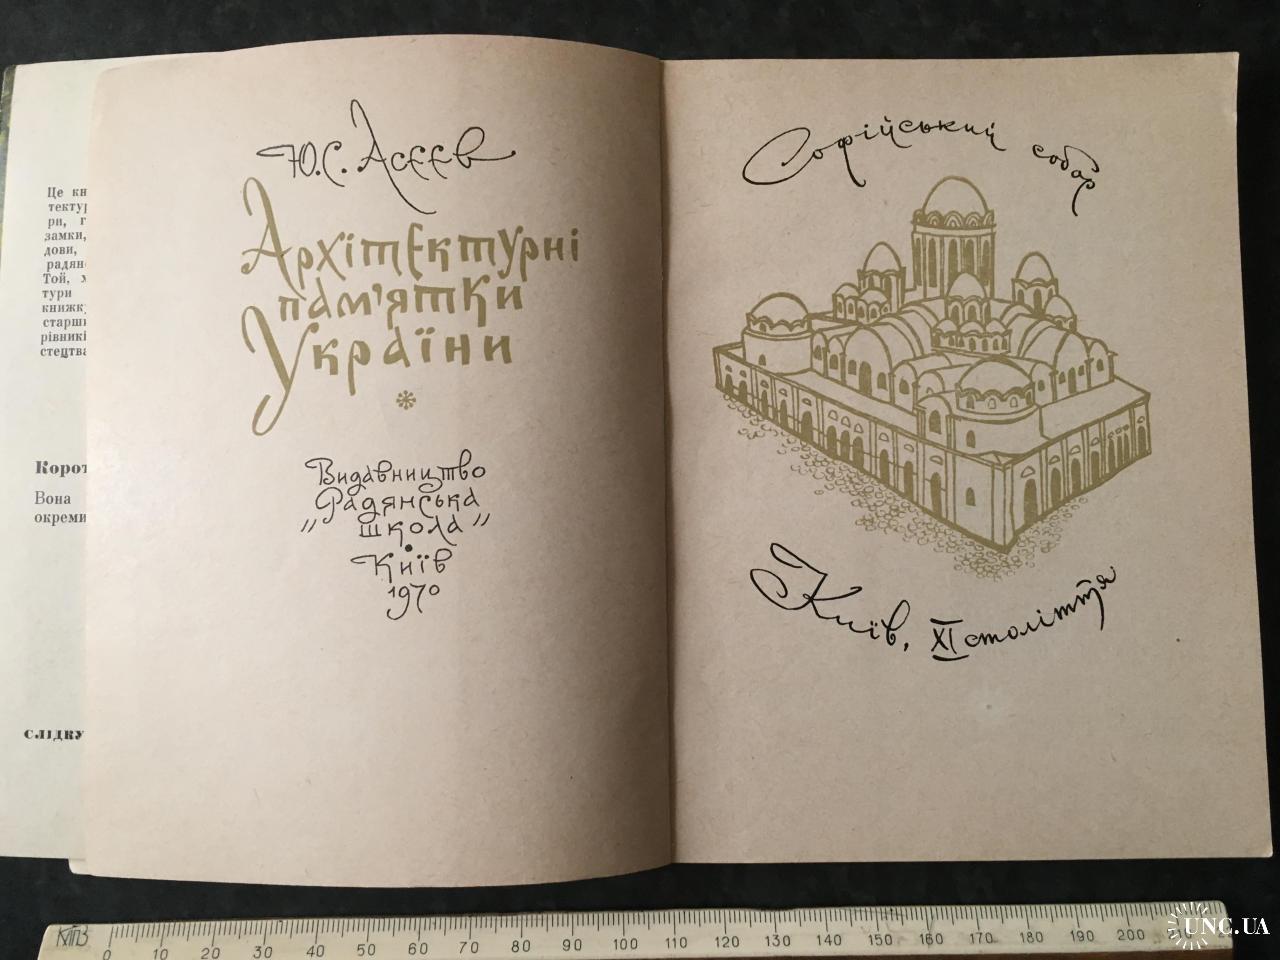 Це кн
тектур
ри, г
замки,
дови,
радян
Той, х
тури
книжк
старш
рівникі
стецтва
Корот
Вона
окреми
СЛІДКУ
Ю.С. Асєєв
Архітектурні
пам'ятки
України
Видавництво
Радянська
„школа”
Київ
1970
Софійський собор
Київ, XI століття
КТПЗ
0 10 20 30 40 50 60 70 80 90 100 110 120 130 140 150 160 170 180 190 200 210
UNC.UA